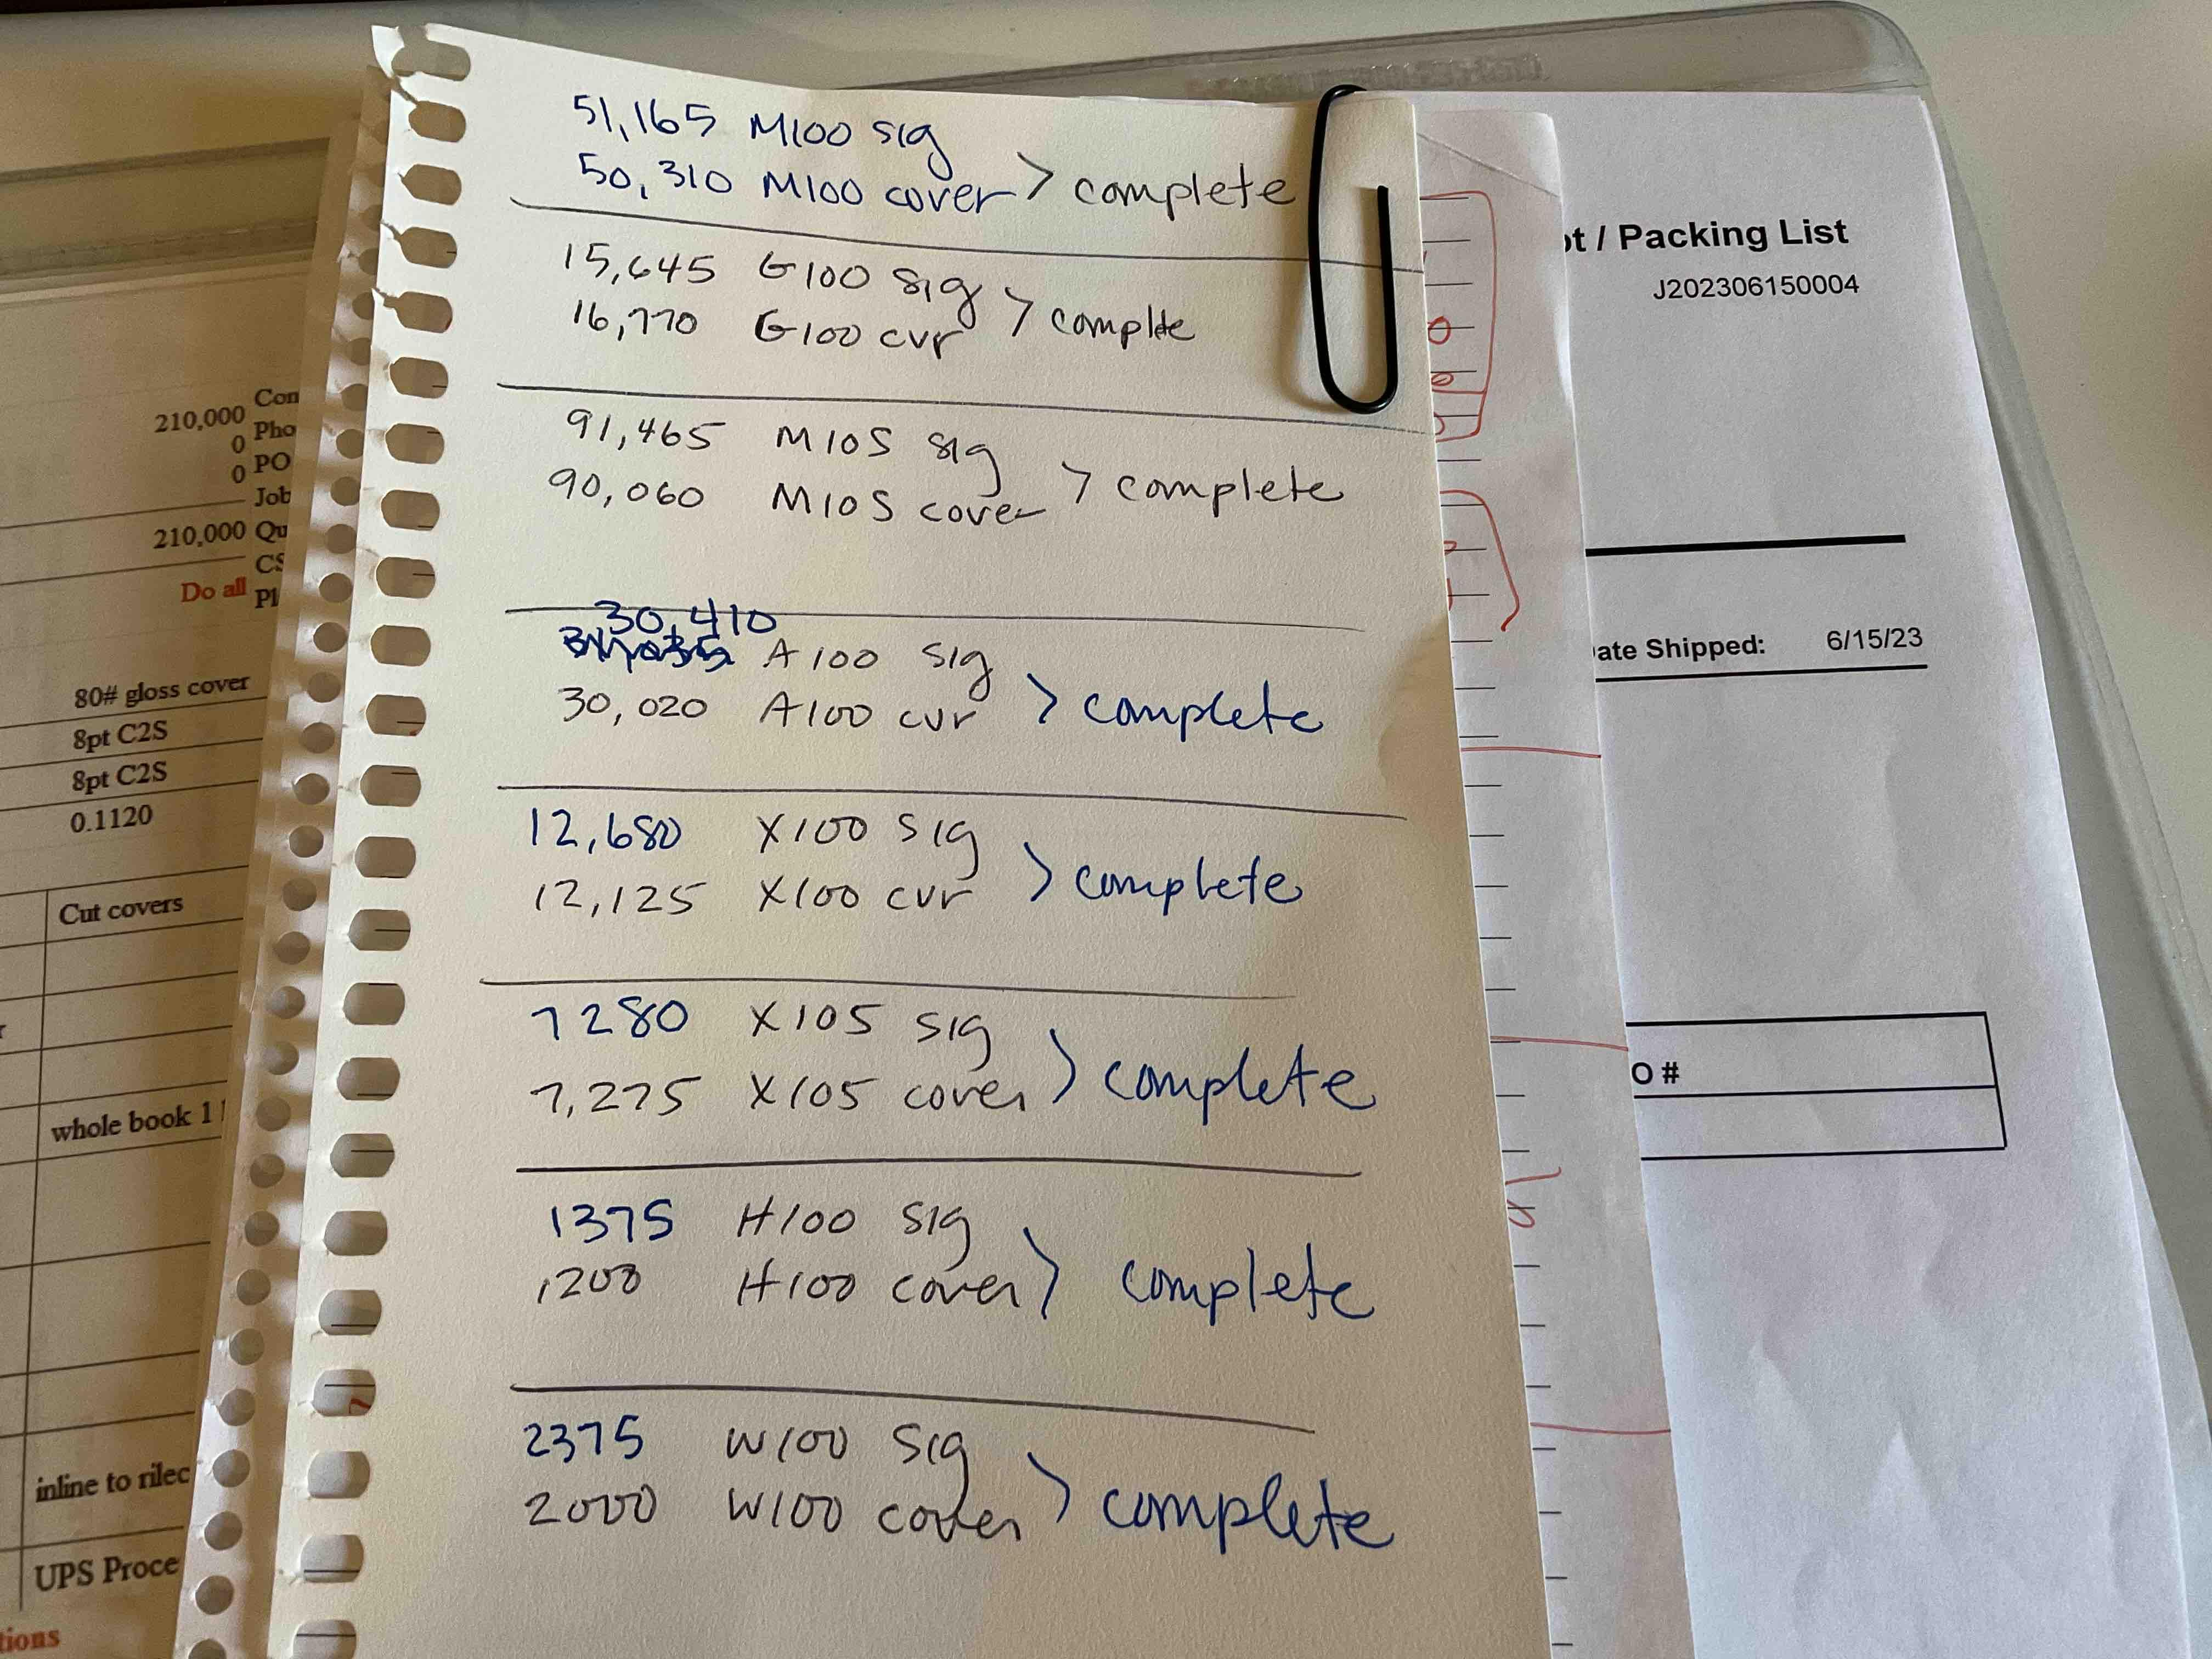 51,165 M100 sig
50,310 M100 cover > complete
15,645 G100 sig
16,770 G100 cvr > complete
91,465 M105 sig
90,060 M105 cover > complete
30,410
A100 sig
30,020 A100 cvr > complete
12,680 X100 sig
12,125 X100 cvr > complete
7280 X105 sig
7,275 X105 cover > complete
1375 H100 sig
1200 H100 cover > complete
2375 W100 sig
2000 W100 cover > complete
210,000 Con
0 Pho
0 PO
Job
210,000 Qu
CS
Do all Pl
80# gloss cover
8pt C2S
8pt C2S
0.1120
Cut covers
whole book 1
inline to rilec
UPS Proce
tions
ot / Packing List
J202306150004
ate Shipped: 6/15/23
O #